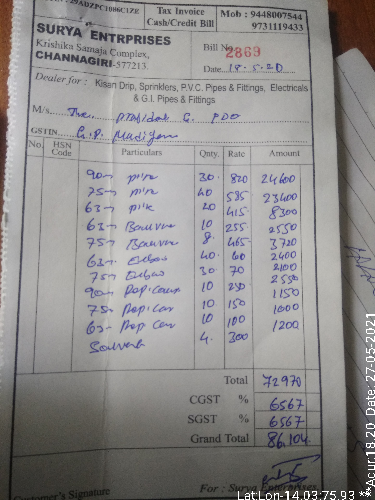 29ADZPC1086C1ZE
Tax Invoice
Cash/Credit Bill
Mob : 9448007544
9731119433
SURYA ENTRPRISES
Krishika Samaja Complex,
CHANNAGIRI-577213.
Bill No. 2869
Date 18.5.20
Dealer for : Kisan Drip, Sprinklers, P.V.C. Pipes & Fittings, Electricals
& G.I. Pipes & Fittings
M/s. The G. PDO
GSTIN G.P.
No. HSN Code Particulars Qnty. Rate Amount
90m pipe 30. 820 24600
75m pipe 40 585 23400
63m pipe 20 415. 8300
63m 10 255. 2550
75m 8. 465. 3720
63m 40. 60 2400
75m 30. 70 2100
90m 10 250 2550
75m 10 150 1150
63m 10 100 1000
4. 300 1200
Total 72970
CGST % 6567
SGST % 6567
Grand Total 86,104
Customer's Signature
For : Surya Enterprises
LatLon-14.03:75.93 **
Agur 18.20 Date: 27-05-2021